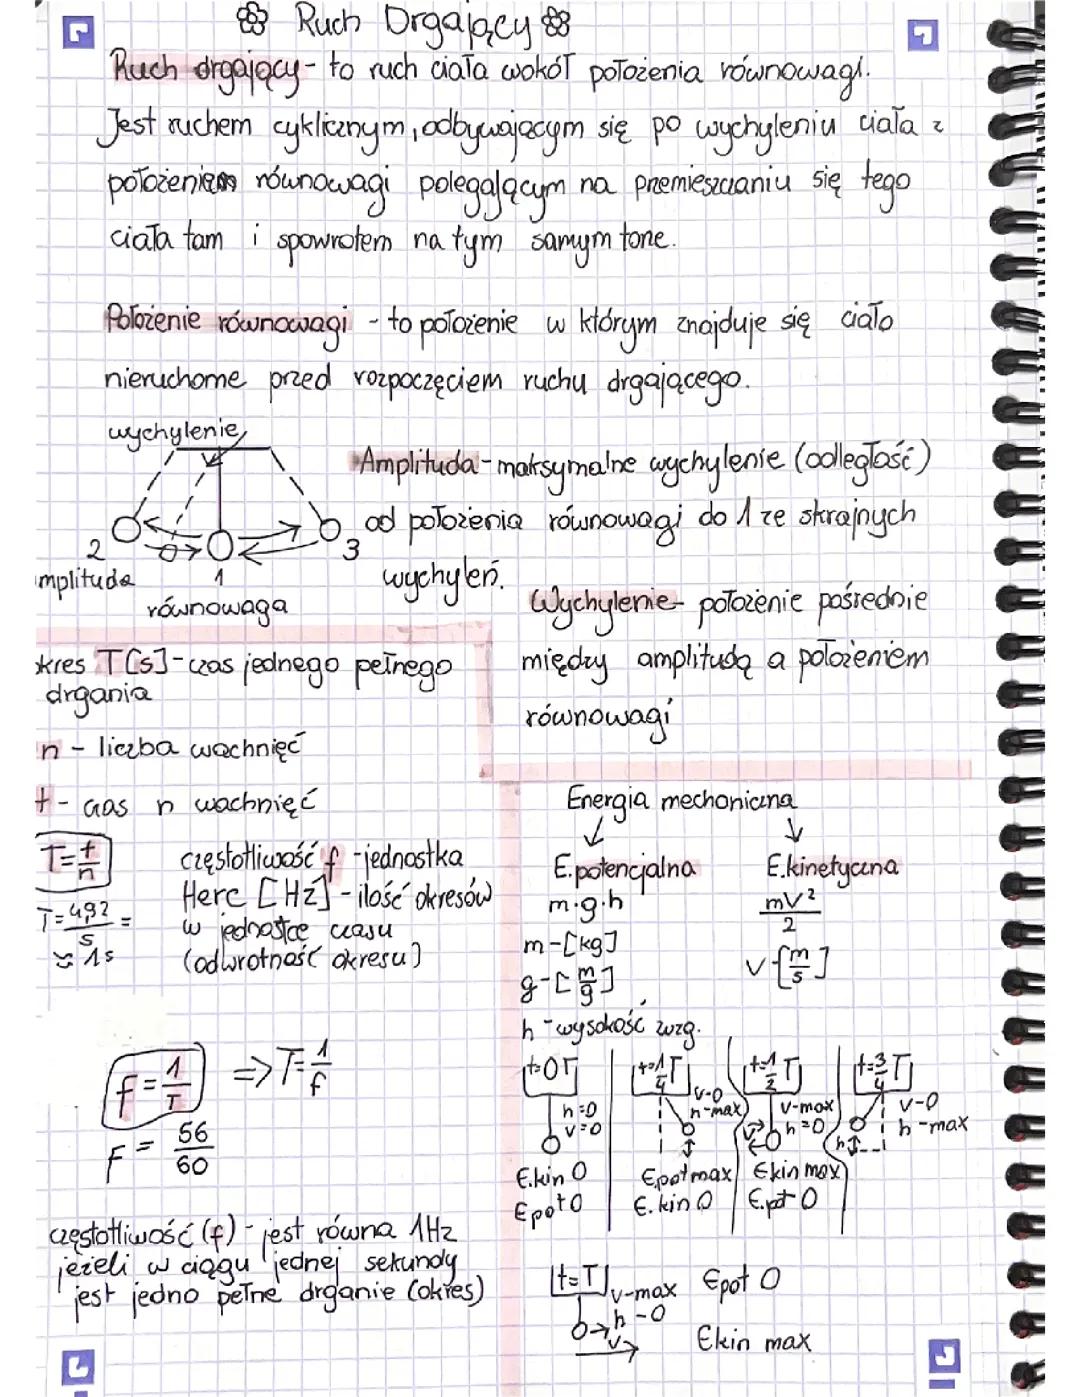 Ruch Drgający
Ruch drgający - to ruch ciała wokół położenia równowagi.
Jest ruchem cyklicznym, odbywającym się po wychyleniu ciała z
położeniem równowagi polegającym na przemieszczaniu się tego
ciała tam i spowrotem na tym samym torze.
Położenie równowagi - to położenie w którym znajduje się ciało
nieruchome przed rozpoczęciem ruchu drgającego.
wychylenie
2
3
mplituda
1
równowaga
Amplituda - maksymalne wychylenie (odległość)
od położenia równowagi do 1 ze skrajnych
wychyleń.
Wychylenie - położenie pośrednie
między amplitudą a położeniem
równowagi
kres T[s] - czas jednego pełnego
drgania
n - liczba wachnięć
t - czas n wachnięć
T = t/n
T = 4,92/5 =
≈ 1s
częstotliwość f - jednostka
Herc [Hz] - ilość okresów
w jednostce czasu
(odwrotność okresu)
f = 1/T => T = 1/f
F = 56/60
częstotliwość (f) - jest równa 1Hz
jeżeli w ciągu jednej sekundy
jest jedno pełne drganie (okres)
Energia mechaniczna
E.potencjalna
m·g·h
m - [kg]
g - [m/g]
h - wysokość wzg.
E.kinetyczna
mv²/2
v - [m/s]
t=0T
h=0
v=0
E.kin 0
Epot 0
t=1/4 T
v-0
h-max
Epot max
E.kin 0
t=1/2 T
v-max
h=0
v
Ekin max
E.pot 0
t=3/4 T
v-0
h-max
h
t=T
v-max
h-0
v
Epot 0
Ekin max